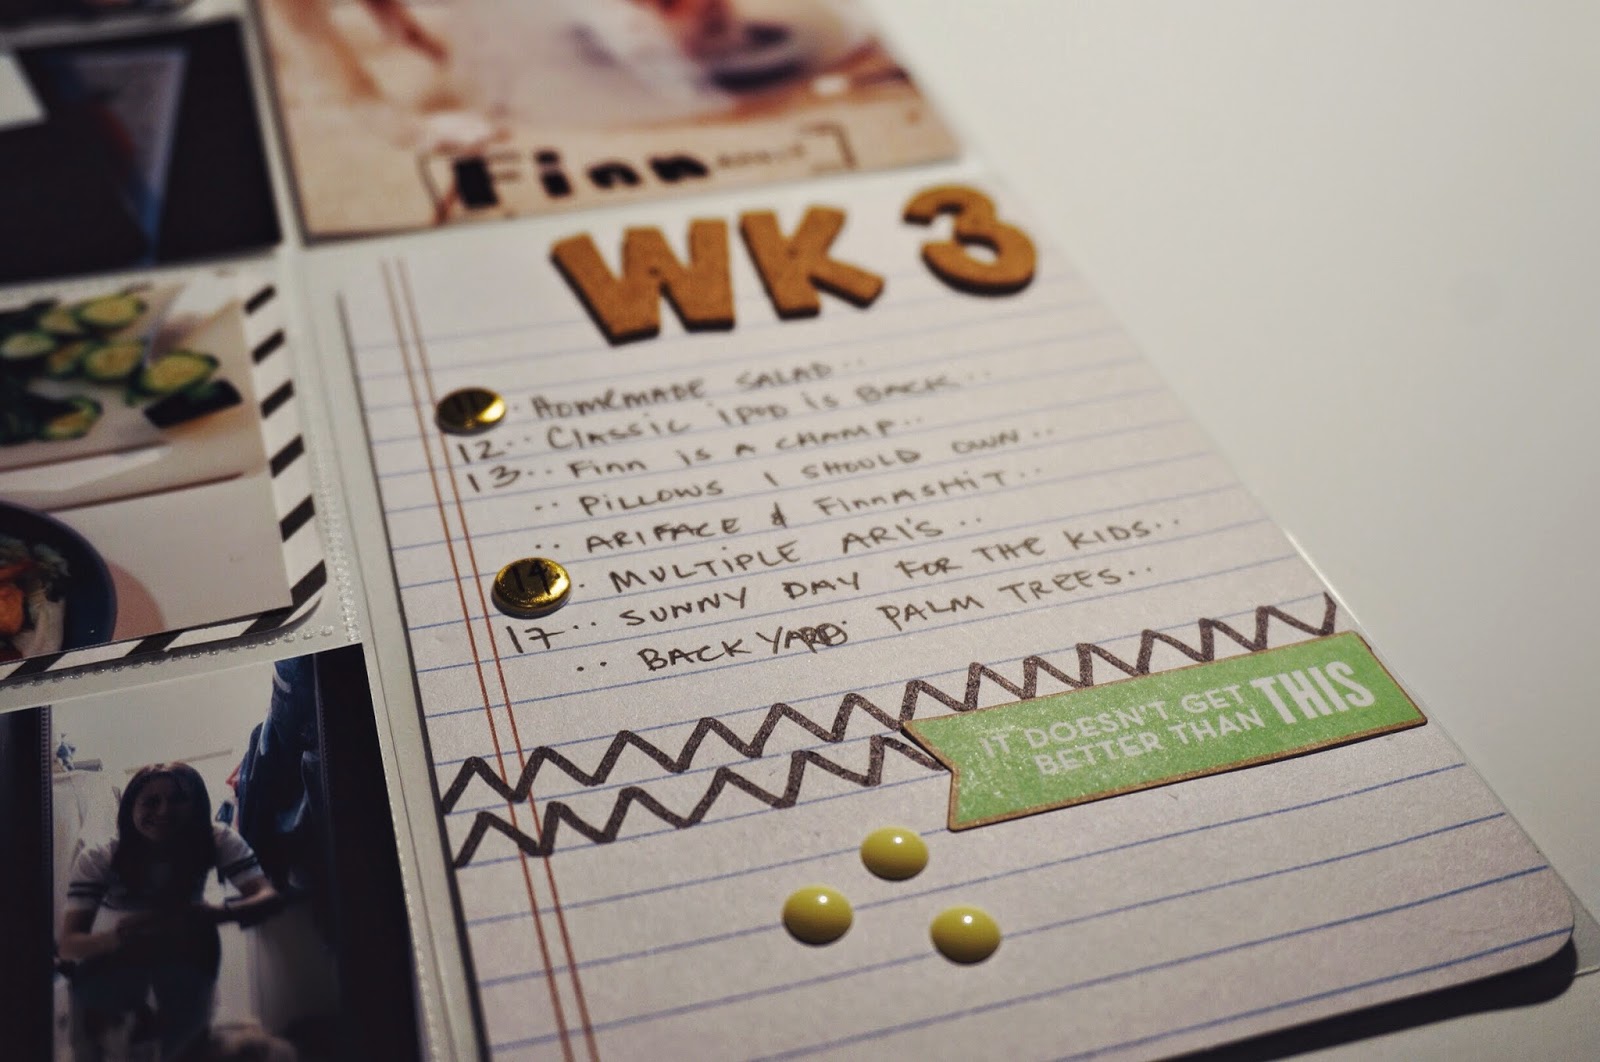 [Finn ]
WK 3
11 · HOMEMADE SALAD··
12·· CLASSIC iPOD is BACK··
13·· Finn is A CHAMP··
·· PILLOWS I SHOULD OWN··
·· ARIFACE & FINNASHIT··
14 · MULTIPLE ARI'S··
17·· SUNNY DAY FOR THE KIDS··
·· BACKYARD PALM TREES··
IT DOESN'T GET
BETTER THAN THIS